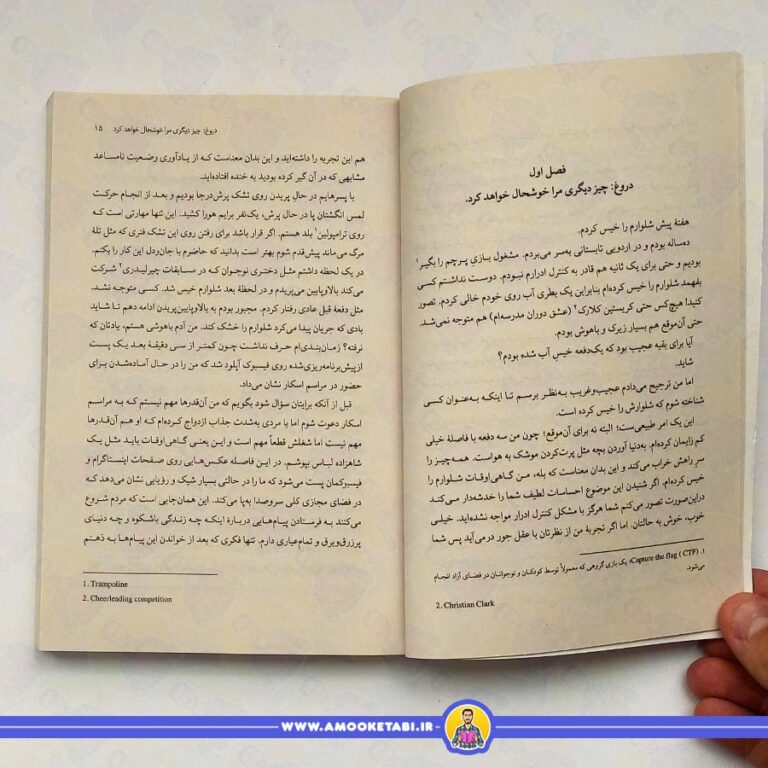 فصل اول
دروغ: چیز دیگری مرا خوشحال خواهد کرد.
هفتهٔ پیش شلوارم را خیس کردم.
ده‌ساله بودم و در اردویی تابستانی به‌سر می‌بردم. مشغول بازیِ پرچم را بگیر۱
بودیم و حتی برای یک ثانیه هم قادر به کنترل ادرارم نبودم. دوست نداشتم کسی
بفهمد شلوارم را خیس کرده‌ام بنابراین یک بطری آب روی خودم خالی کردم. تصور
کنید! هیچ‌کس حتی کریستین کلارک۲ (عشق دوران مدرسه‌ام) هم متوجه نمی‌شد.
حتی آن‌موقع هم بسیار زیرک و باهوش بودم.
آیا برای بقیه عجیب بود که یک‌دفعه خیسِ آب شده بودم؟
شاید.
اما من ترجیح می‌دادم عجیب‌وغریب به‌نظر برسم تا اینکه به‌عنوان کسی
شناخته شوم که شلوارش را خیس کرده است.
این یک امر طبیعی‌ست؛ البته نه برای آن‌موقع؛ چون من سه دفعه با فاصلهٔ خیلی
کم زایمان کرده‌ام. به‌دنیا آوردن بچه مثل پرت‌کردن موشک به هواست. همه‌چیز را
سرِ راهش خراب می‌کند و این بدان معناست که بله، من گاهی‌اوقات شلوارم را
خیس کرده‌ام. اگر شنیدن این موضوع احساسات لطیف شما را خدشه‌دار می‌کند
دراین‌صورت تصور می‌کنم شما هرگز با مشکل کنترل ادرار مواجه نشده‌اید. خیلی
خوب، خوش به حالتان. اما اگر تجربهٔ من از نظرتان با عقل جور درمی‌آید پس شما
۱. Capture the flag ( CTF)؛ یک بازی گروهی که معمولاً توسط کودکان و نوجوانان در فضای آزاد انجام
می‌شود.
2. Christian Clark
دروغ: چیز دیگری مرا خوشحال خواهد کرد ۱۵
هم این تجربه را داشته‌اید و این بدان معناست که از یادآوری وضعیت نامساعد
مشابهی که در آن گیر کرده بودید به خنده افتاده‌اید.
با پسرهایم در حال پریدن روی تشک پرش‌درجا بودیم و بعد از انجام حرکت
لمس انگشتان پا در حال پرش، یک‌نفر برایم هورا کشید. این تنها مهارتی است که
روی ترامپولین۱ بلد هستم. اگر قرار باشد برای رفتن روی این تشک فنری که مثل تلهٔ
مرگ می‌ماند پیش‌قدم شوم بهتر است بدانید که حاضرم با جان‌ودل این کار را بکنم.
در یک لحظه داشتم مثل دختری نوجوان که در مسابقات چیرلیدری۲ شرکت
می‌کند بالاوپایین می‌پریدم و در لحظهٔ بعد شلوارم خیس شد. کسی متوجه نشد.
مثل دفعهٔ قبل عادی رفتار کردم. مجبور بودم به بالاوپایین‌پریدن ادامه دهم تا شاید
بادی که جریان پیدا می‌کرد شلوارم را خشک کند. من آدم باهوشی هستم، یادتان که
نرفته؟ زمان‌بندی‌ام حرف نداشت چون کمتر از سی دقیقهٔ بعد یک پست
ازپیش‌برنامه‌ریزی‌شده روی فیسبوک آپلود شد که من را در حال آماده‌شدن برای
حضور در مراسم اسکار نشان می‌داد.
قبل از آنکه برایتان سؤال شود بگویم که من آن‌قدرها مهم نیستم که به مراسم
اسکار دعوت شوم اما با مردی به‌شدت جذاب ازدواج کرده‌ام که او هم آن‌قدرها
مهم نیست اما شغلش قطعاً مهم است و این یعنی گاهی‌اوقات باید مثل یک
شاهزاده لباس بپوشم. در این فاصله عکس‌هایی روی صفحات اینستاگرام و
فیسبوکمان پست می‌شود که ما را در حالتی بسیار شیک و رؤیایی نشان می‌دهد که
در فضای مجازی کلی سروصدا به‌پا می‌کند. این همان‌جایی است که مردم شروع
می‌کنند به فرستادن پیام‌هایی دربارهٔ اینکه چه زندگی باشکوه و چه دنیای
پرزرق‌وبرق و تمام‌عیاری دارم. تنها فکری که بعد از خواندن این پیام‌ها به ذهنم
1. Trampoline
2. Cheerleading competition
WWW.AMOOKETABI.IR